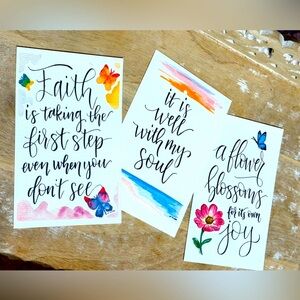 Faith
is taking the
first step
even when you
don't see
it is
well
with my
soul
a flower
blossoms
for its own
joy